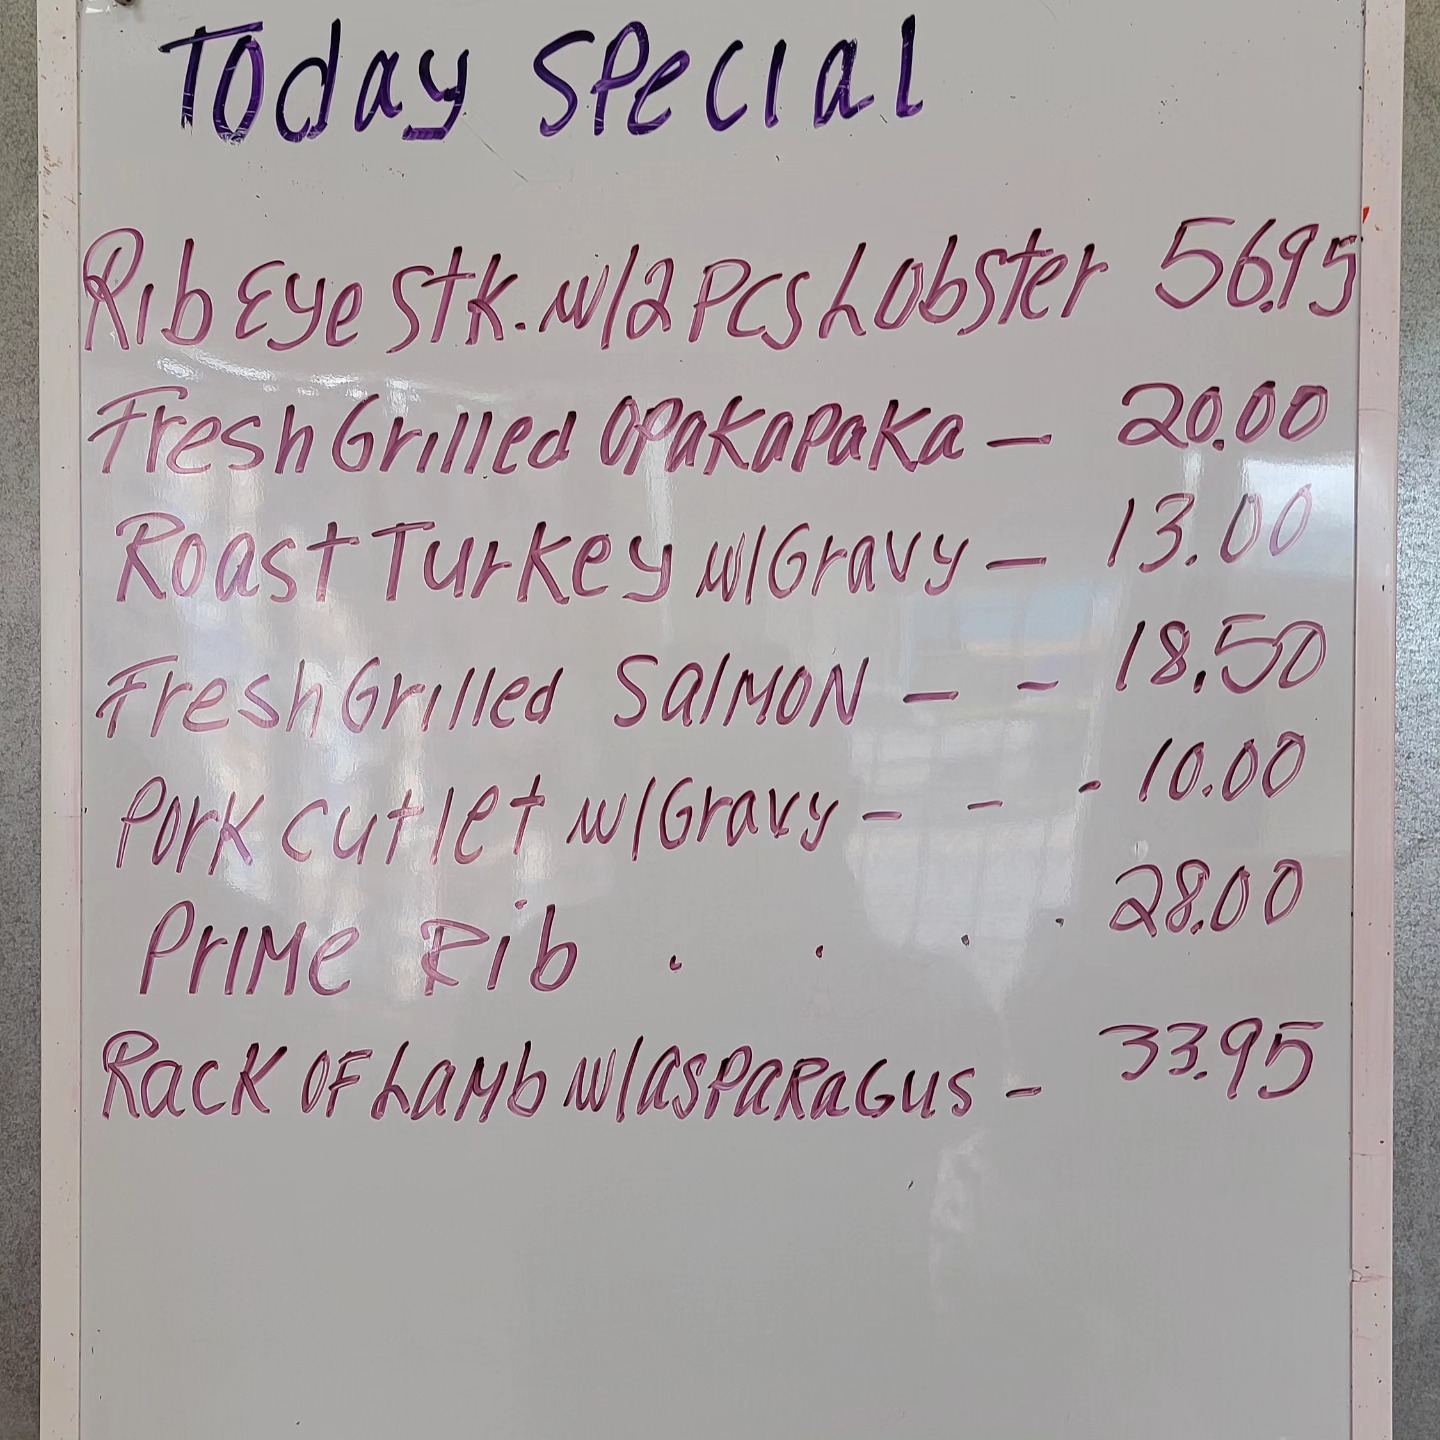 Today Special
Rib Eye Stk. w/2 Pcs Lobster 56.95
Fresh Grilled Opakapaka — 20.00
Roast Turkey w/Gravy — 13.00
Fresh Grilled Salmon — - 18.50
Pork Cutlet w/Gravy - - - 10.00
Prime Rib . . . . 28.00
Rack Of Lamb w/Asparagus - 33.95